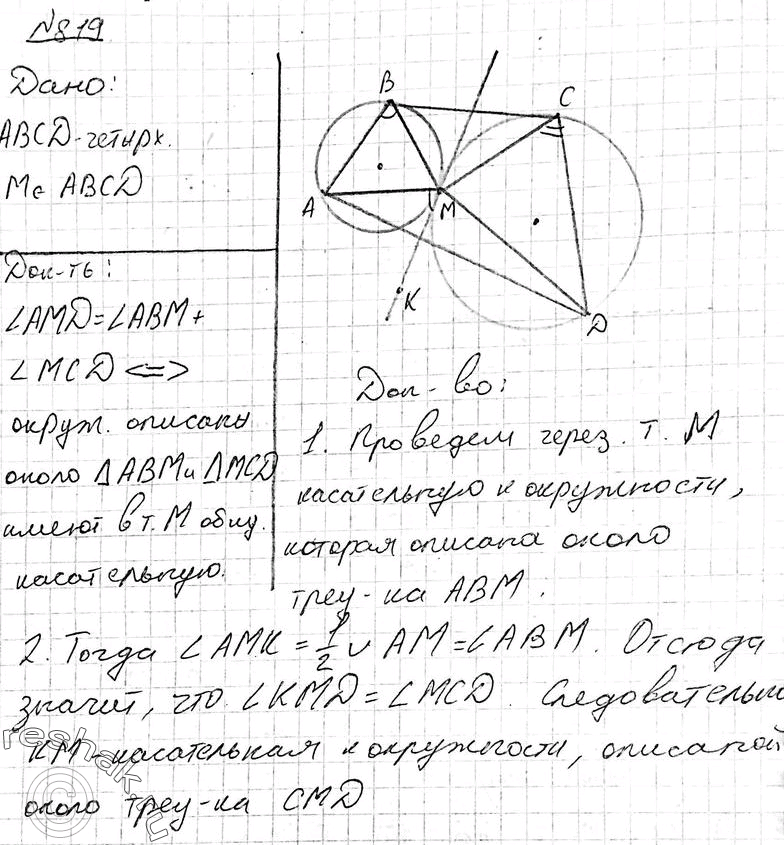 №819
Дано:
ABCD-четырх.
M∈ ABCD
Док-ть:
∠AMD=∠ABM+
∠MCD <=>
окруж. описаны
около △ABM и △MCD
имеют в т. M общ.
касательную.
B
C
A
M
K
D
Док-во:
1. Проведем через т. M
касательную к окружности,
которая описана около
треу-ка ABM.
2. Тогда ∠AMK = 1/2 ∪ AM = ∠ABM. Отсюда
значит, что ∠KMD = ∠MCD. Следовательно
KM - касательная к окружности, описаной
около треу-ка CMD
reshak.ru